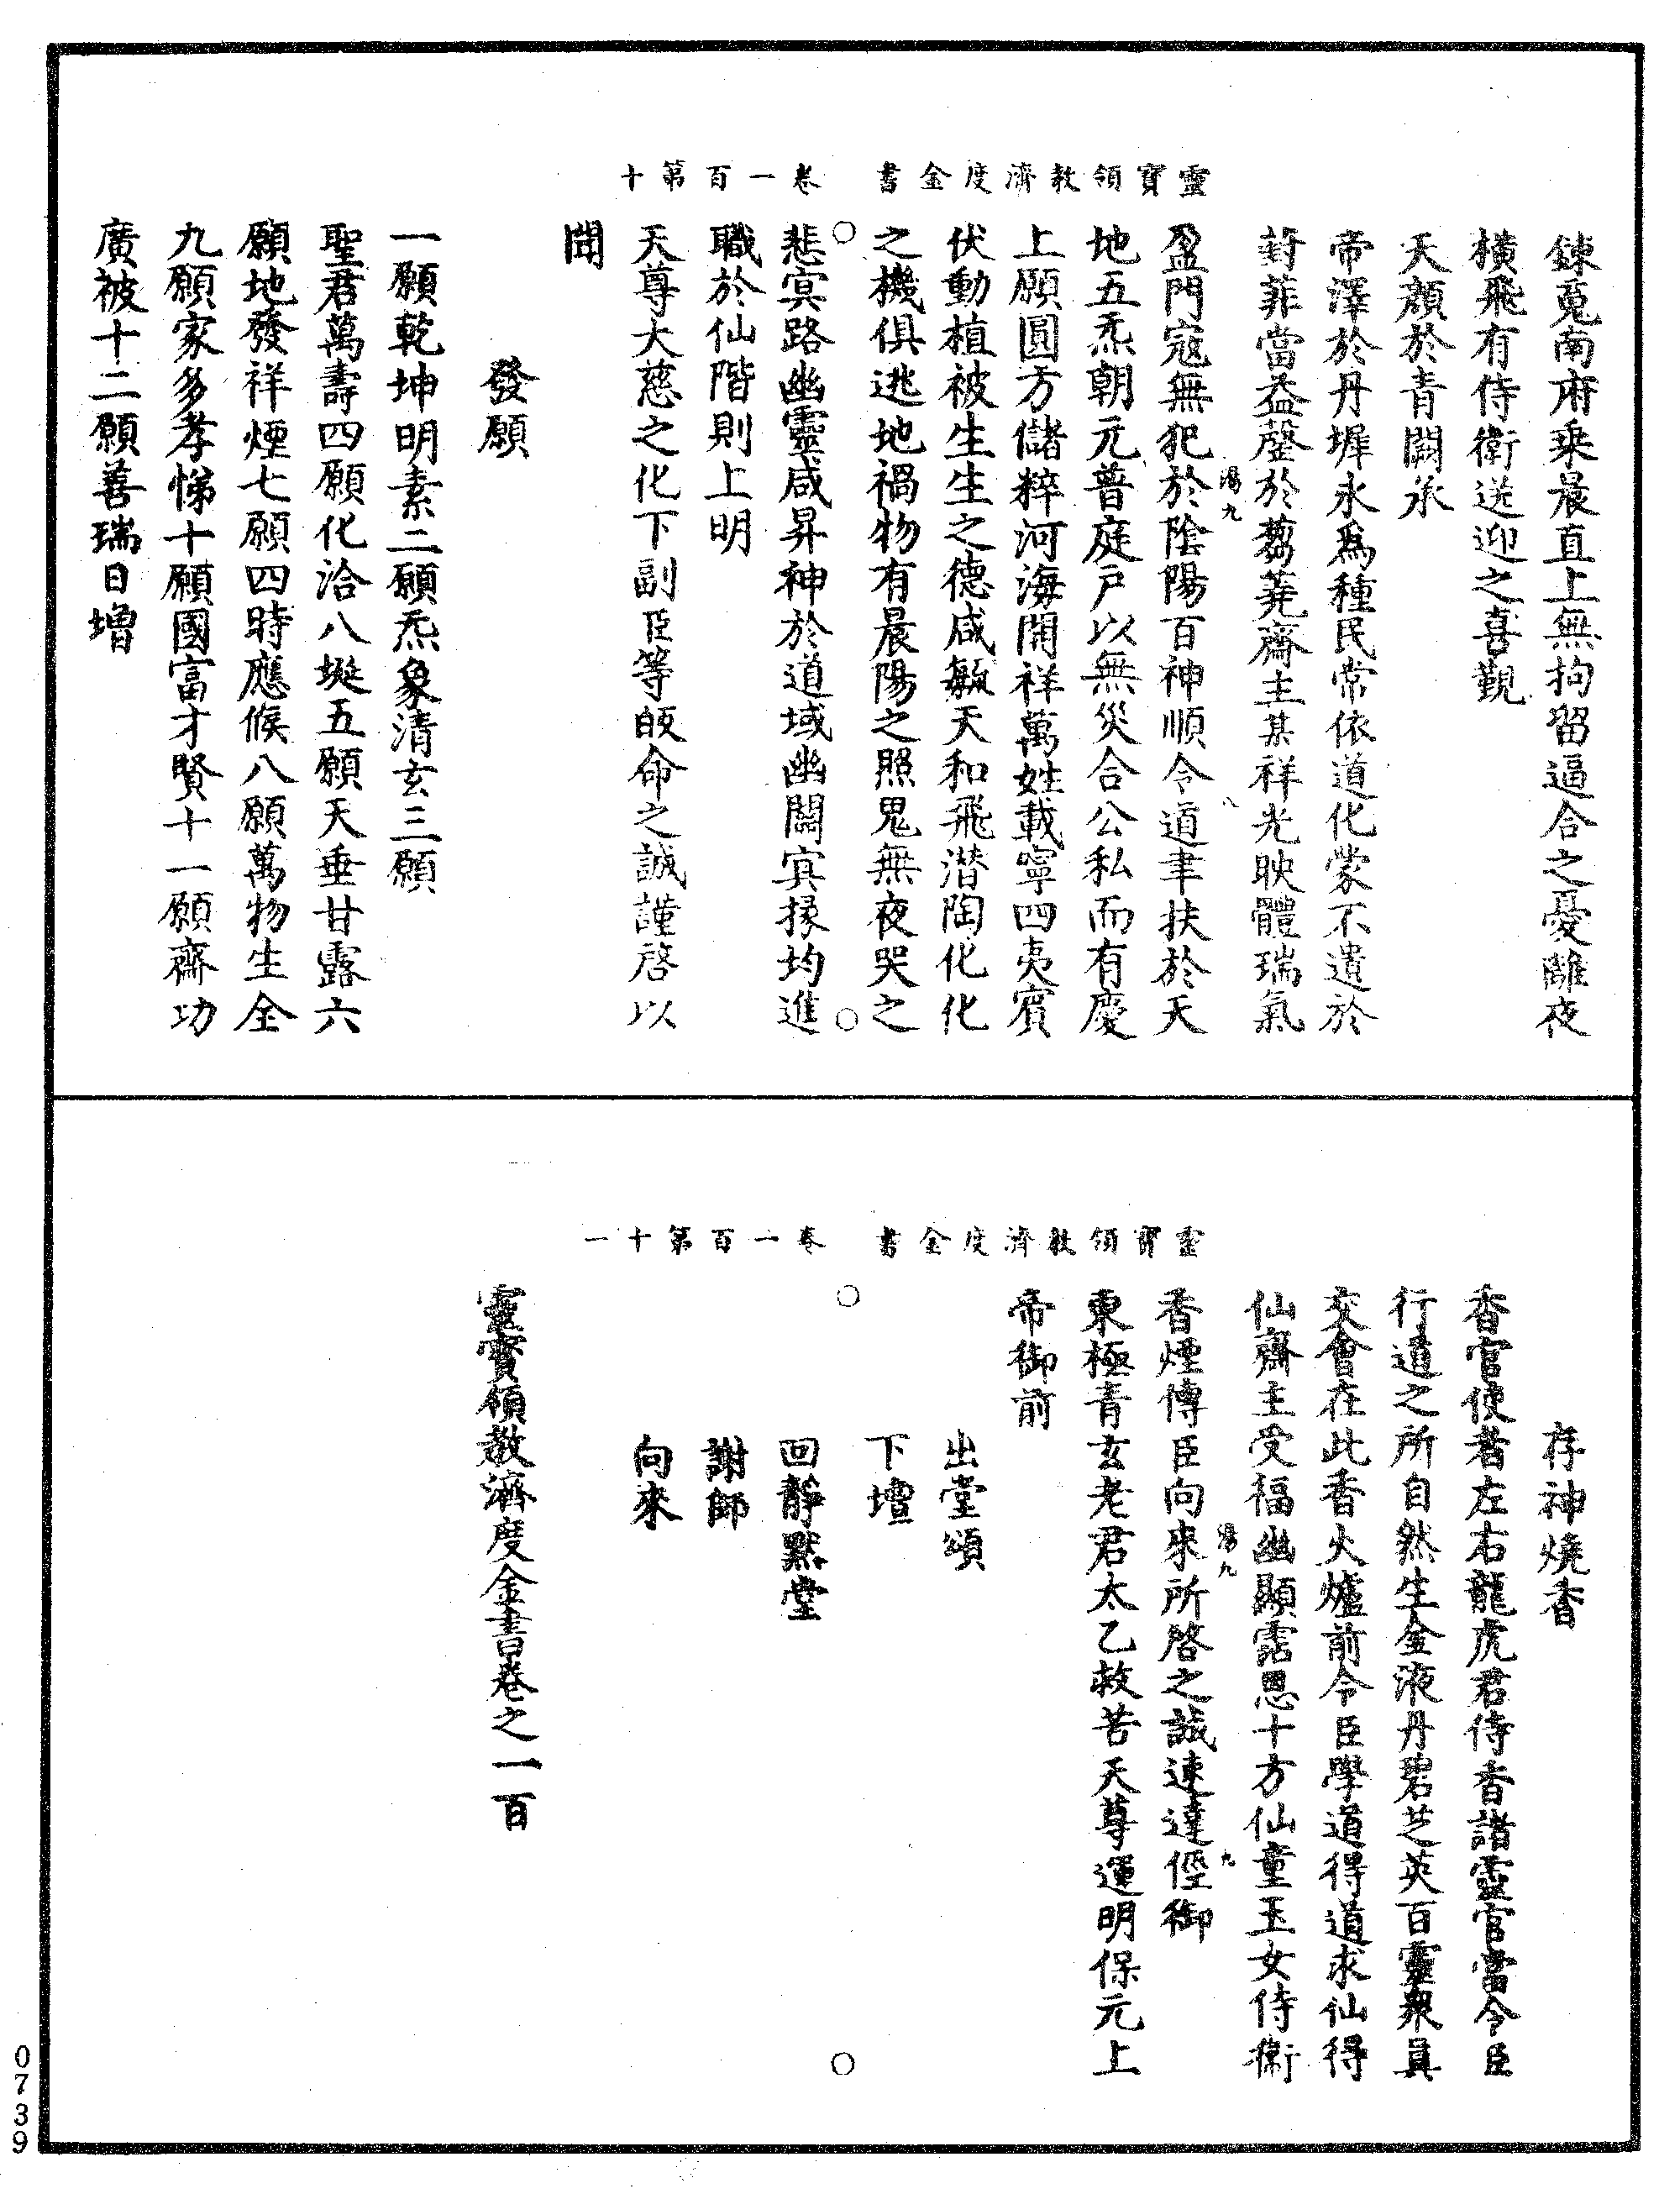 靈寶領教濟度金書　卷一百第十
鍊䰟南府乘晨直上無拘留逼合之憂離夜
橫飛有侍衛送迎之喜覲
天顏於青闕承
帝澤於丹墀永為種民常依道化蒙不遺於
葑菲當益罄於蒭蕘齋主某祥光映體瑞氣
盈門寇無犯於陰陽百神順令道聿扶於天
地五炁朝元普庭戶以無災合公私而有慶
上願圓方儲粹河海開祥萬姓載寧四夷賓
伏動植被生生之德咸毓天和飛潛陶化化
之機俱逃地禍物有晨陽之照鬼無夜哭之
悲冥路幽靈咸昇神於道域幽關冥掾均進
職於仙階則上明
天尊大慈之化下副臣等皈命之誠謹啓以
聞
發願
一願乾坤明素二願炁象清玄三願
聖君萬壽四願化洽八埏五願天垂甘露六
願地發祥煙七願四時應候八願萬物生全
九願家多孝悌十願國富才賢十一願齋功
廣被十二願善瑞日增
湯九
八
靈寶領教濟度金書　卷一百第十一
存神燒香
香官使者左右龍虎君侍香諸靈官當令臣
行道之所自然生金液丹碧芝英百靈衆眞
交會在此香火爐前令臣學道得道求仙得
仙齋主受福幽顯霑恩十方仙童玉女侍衛
香煙傳臣向來所啓之誠速達徑御
東極青玄老君太乙救苦天尊運明保元上
帝御前
出堂頌
下壇
回靜默堂
謝師
向來
靈寶領教濟度金書卷之一百
湯九
九
0739